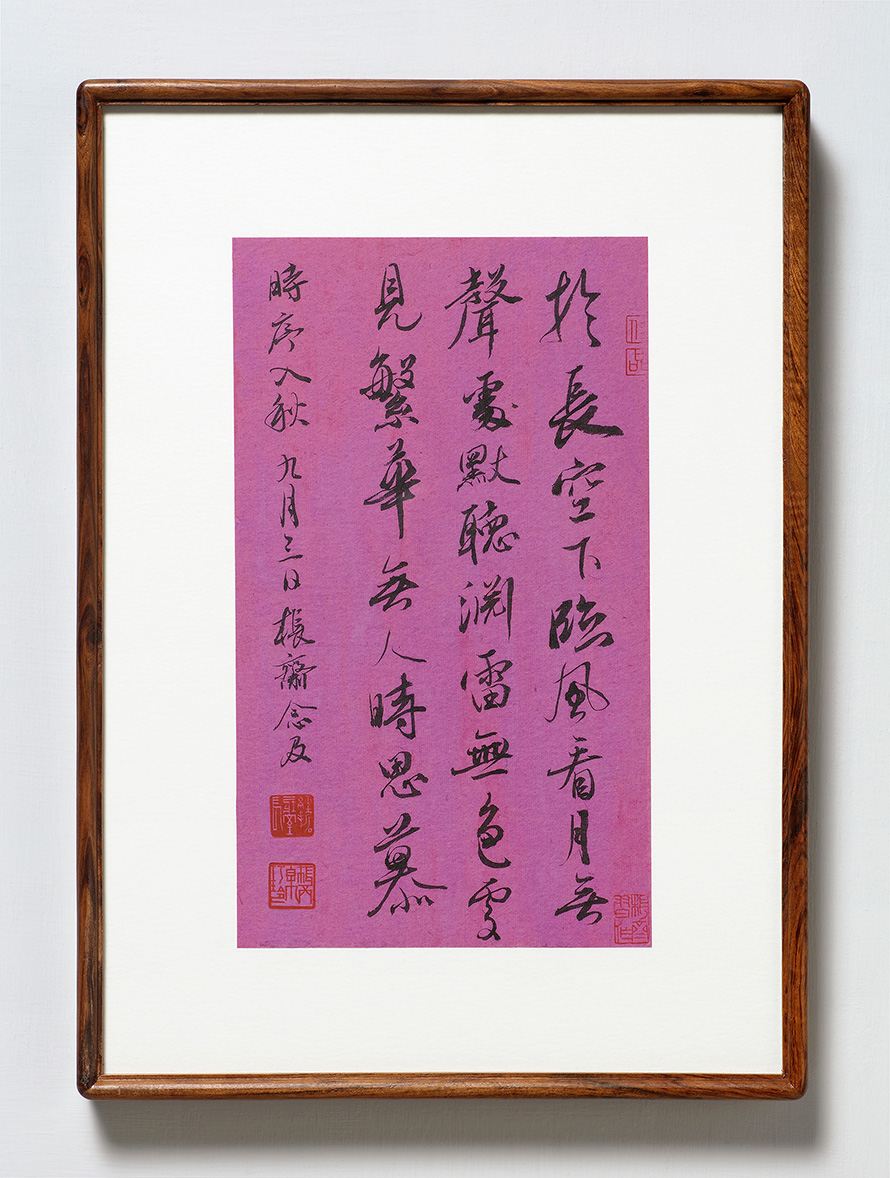 於長空下臨風看月無
聲處默聽淵雷無色處
見繁華無人時思慕
時序入秋九月三日棖齋念及